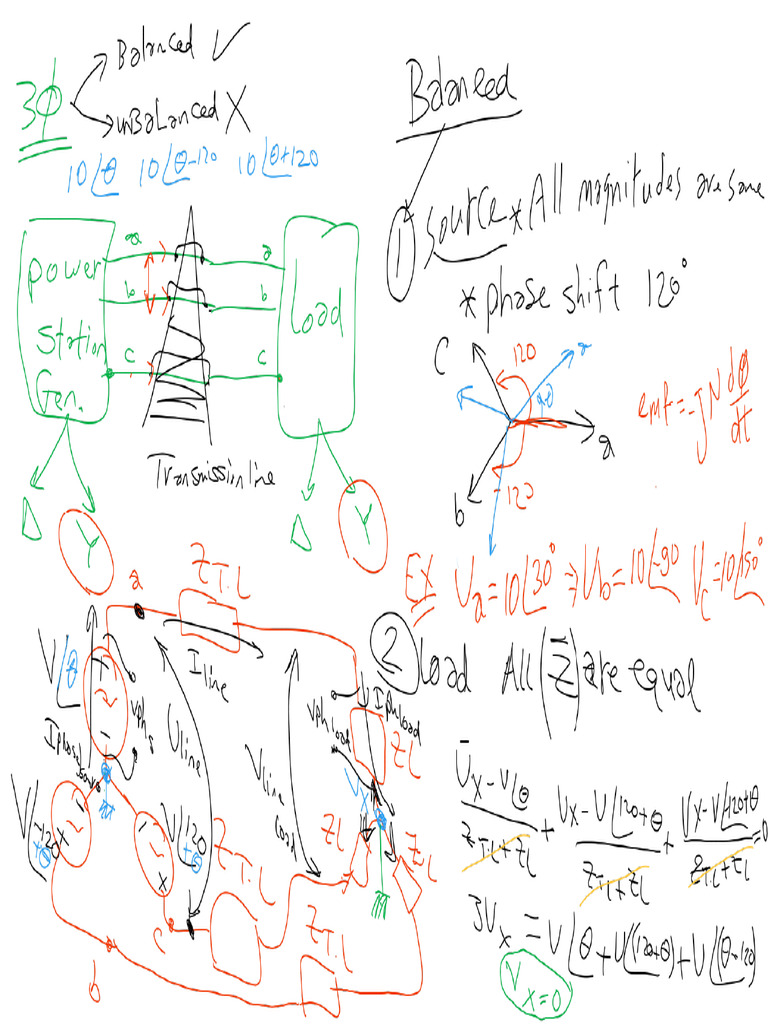 3φ
Balanced √
unBalanced X
10∠θ 10∠θ-120 10∠θ+120
Power
Station
Gen.
a
b
c
a
b
c
Load
Transmission line
Δ
Y
Δ
Y
Balanced
① Source * All magnitudes are same
* phase shift 120°
C
120
a
90
a
b
-120
emf = -j N dφ/dt
Ex Va = 10∠30° ⇒ Vb = 10∠-90 Vc = 10∠150°
② Load All (Z̄) are equal
a
Z T.L
I line
V∠θ
+
-
Vphs
Iphase source
V line
V line Load
Vph Load
Iph Load
ZL
Vx
V∠-120+θ
V∠120+θ
Z T.L
ZL
ZL
Z T.L
c
b
V̄x - V∠θ / Z T.L + ZL + Vx - V∠120+θ / Z T.L + ZL + Vx - V∠-120+θ / Z T.L + ZL = 0
3Vx = V∠θ + V∠(120+θ) + V∠(θ-120)
Vx=0